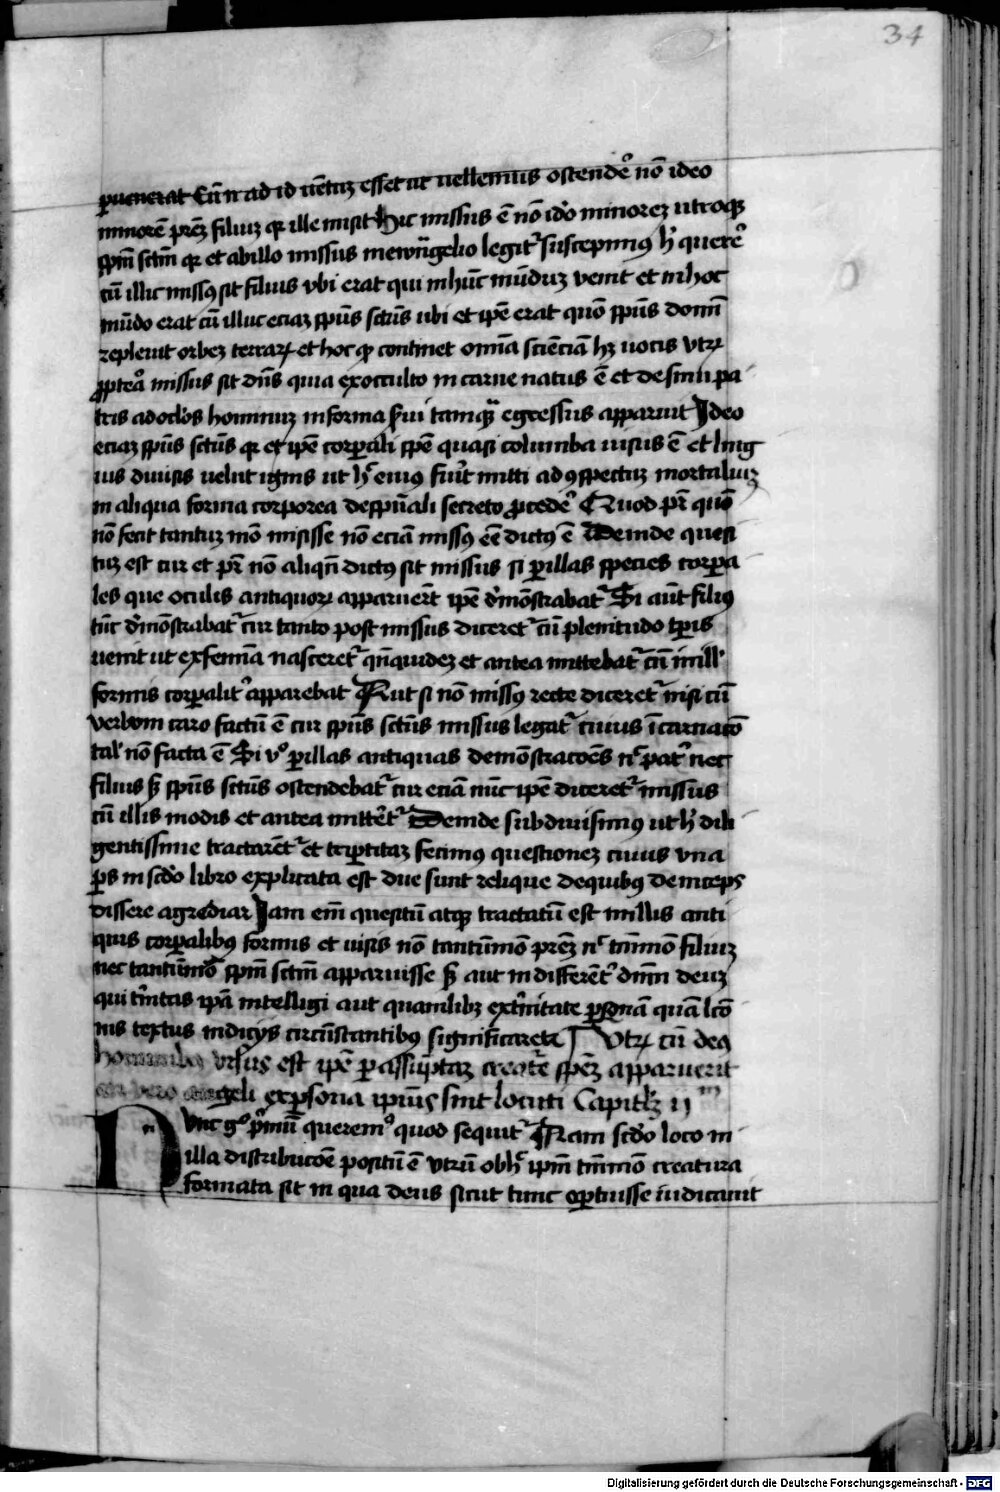 34
puenerat Cū n̄ ad id uētuȝ esset ut uellemus ostendẽ nō ideo
minorē prēȝ filiuȝ qr ille misit hic missus ē nō iḋo minoreȝ utroqȝ
spm̄ sctm̄ qr et ab illo missus in ewāgelio legitr suscepimus hͦ querẽ
cū illic missꝯ sit filius vbi erat qui in hūc mūduȝ venit et in hoc
mūdo erat cū illuc eciaȝ spūs sctūs ubi et ipē erat quō spūs domī
repleuit orbeȝ terraꝝ et hoc qͦ continet omīa sciēciā hȝ uocis vtꝝ
ꝓpteā missus sit dn̄s quia ex occulto in carne natus ē et de sinu pa
tris ad ocl̓os hominuȝ in forma s̓ui tamqͣ egressus apparuit Ideo
eciaȝ spūs sctūs qr et ipē corꝑali spē quasi columba uisus ē et ling
uis diuisis uelut ignis ut hͨ eius fuīt mitti ad ꝯspectuȝ mortaliuȝ
in aliqua forma corporea de spūali secreto ꝓcedeͬ Quod pr̄ quō
nō fecit tantuȝ mō misisse nō eciā missꝯ eē dictꝯ ē Deinde quesi
tuȝ est cur et pr̄ nō aliqn̄ dictꝯ sit missus si ꝑ illas species corꝑa
les que oculis antiquoꝝ apparuer̄t ipē dͤmōstrabatr Si aūt filiꝯ
tūc dͤmōstrabatr cur tanto post missus diceretr cū plenitudo tp̄is
uenit ut ex femīa nasceretr qn̄quideȝ et antea mittebatr cū in ill̓
formis corꝑalitͬ apparebat Aut si nō missꝯ recte diceretr nisi cū
verbom caro factū ē cur spūs sctūs missus legatr cuius īcarnacō
tal̓ nō facta ē Si vͦ ꝑ illas antiquas demōstracōes nͨ patͬ nec
filius sȝ spūs sctūs ostendebatr cur eciā nūc ipē diceretr missus
cū illis modis et antea mitter̄tr Deinde subdiuisimꝯ ut hͨ dili
gentissime tractarētr et tripertitaȝ fecimꝯ questioneȝ cuius vna
ps in scdo libro explicata est due sunt relique de quibꝯ deinceps
dissere agrediar Iam em̄ quesitū atqȝ tractatū est in illis anti
quis corꝑalibꝯ formis et uisis nō tantūmō prēȝ nͨ tm̄mō filiuȝ
nec tantūmō spm̄ sctm̄ apparuisse sȝ aut indifferētͬ dnm̄ deuȝ
qui trinitas ipā intelligi aut quamlibȝ ex trinitate ꝑsonā quā lcō
nis textus indicijs circūstantibꝯ significaret Vtꝝ cū deꝯ
hominibꝯ visus est ipē ꝑ assūptaȝ creat̄e spēȝ apparuerit
an vero angeli ex ꝑsona ipiuȝ sint locuti Capitlȝ ijᵐ
Nvnc gͦ prīmū queremꝯ quod sequitr Nam scdo loco in
illa distribucōe positū ē vtrū ob hͨ ipm̄ tm̄mō creatura
formata sit in qua deus sicut tunc oꝑtuisse iudicauit
Digitalisierung gefördert durch die Deutsche Forschungsgemeinschaft - DFG